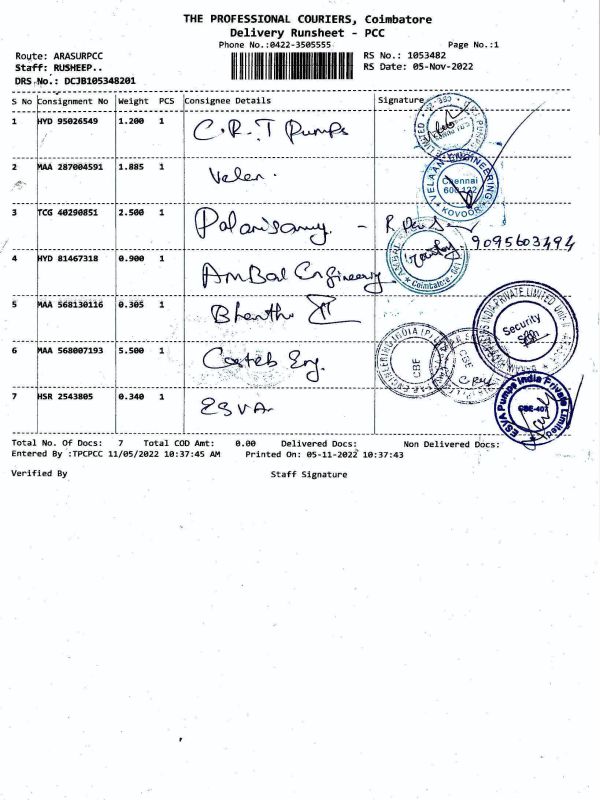 THE PROFESSIONAL COURIERS, Coimbatore
Delivery Runsheet - PCC
Phone No.:0422-3505555
Page No.:1
Route: ARASURPCC
RS No.: 1053482
Staff: RUSHEEP..
RS Date: 05-Nov-2022
DRS No.: DCJB105348201
S No Consignment No Weight PCS Consignee Details Signature
1 HYD 95026549 1.200 1 C.R.T Pumps
2 MAA 287004591 1.885 1 Velan.
VELAAN ENGINEERING
Chennai
KOVOOR
3 TCG 40290851 2.500 1 Palanisamy. -
9095603494
4 HYD 81467318 0.900 1 AmBal Engineering
Coimbatore
5 MAA 568130116 0.305 1
PRIVATE LIMITED
Security
6 MAA 568007193 5.500 1 Eng.
ENGINEERING INDIA (P)
CBE
CBE
7 HSR 2543805 0.340 1 ESVA
ESVA Pumps India Private Limited
CBE-407
Total No. Of Docs: 7 Total COD Amt: 0.00 Delivered Docs: Non Delivered Docs:
Entered By :TPCPCC 11/05/2022 10:37:45 AM Printed On: 05-11-2022 10:37:43
Verified By Staff Signature